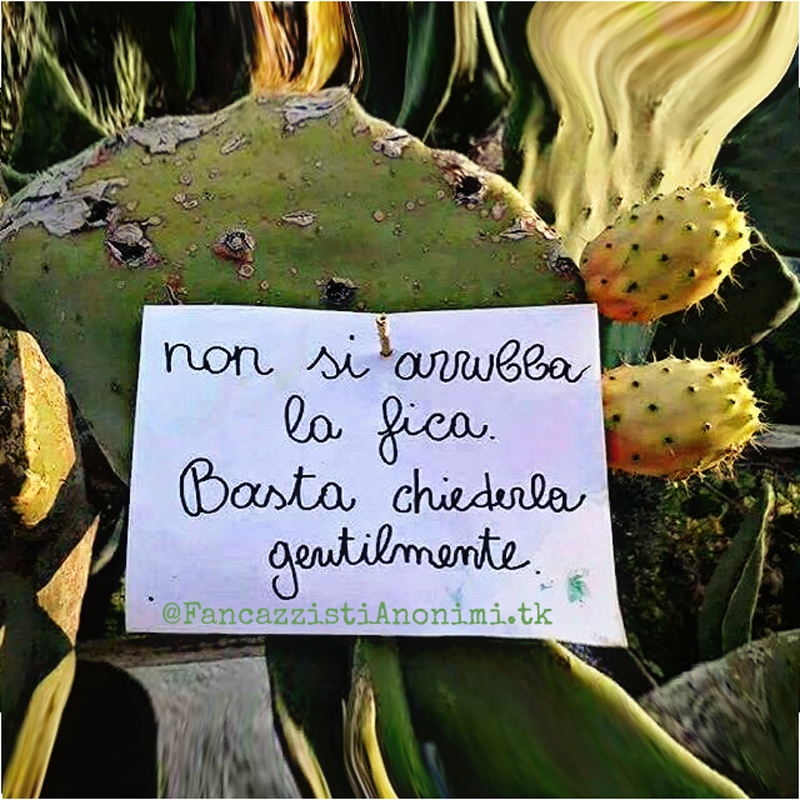 non si arrubba
la fica.
Basta chiederla
gentilmente.
@FancazzistiAnonimi.tk